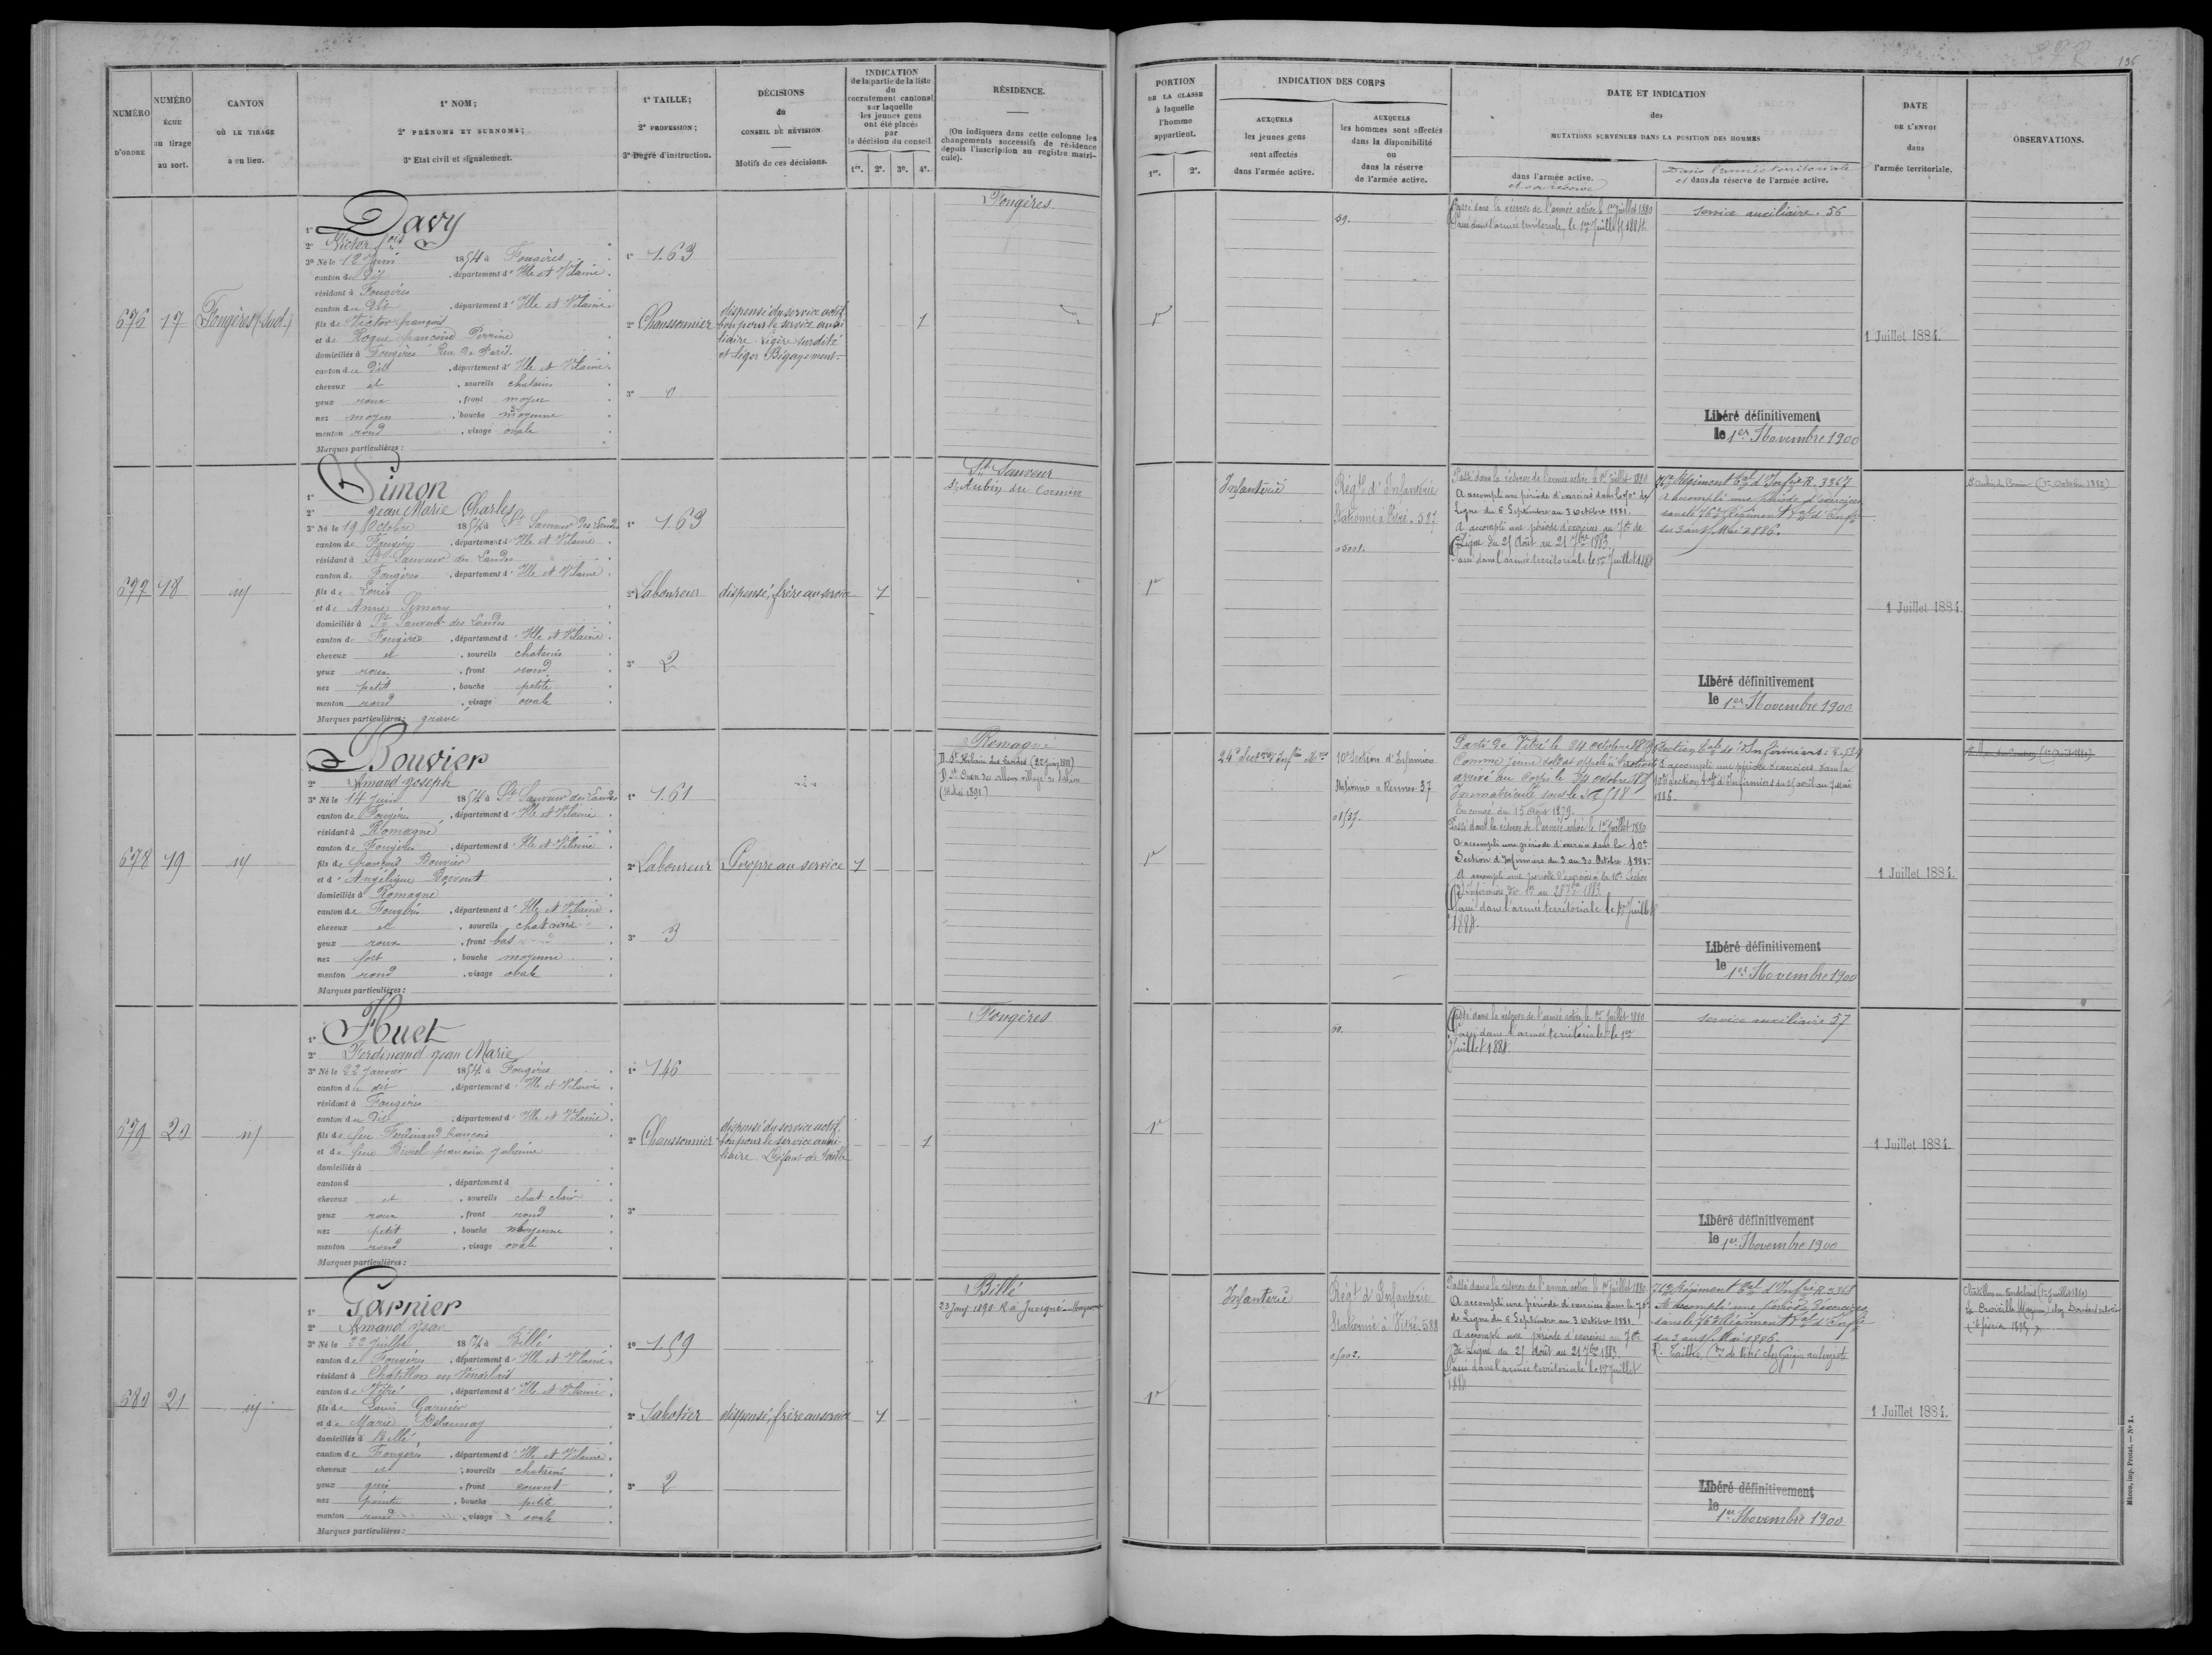 136
NUMÉRO D'ORDRE
NUMÉRO ÉCHU au tirage au sort.
CANTON OÙ LE TIRAGE a eu lieu.
1° NOM;
2° PRÉNOMS ET SURNOMS;
3° Etat civil et signalement.
1° TAILLE;
2° PROFESSION;
3° Degré d'instruction.
DÉCISIONS du CONSEIL DE RÉVISION
Motifs de ces décisions.
INDICATION de la partie de la liste du recrutement cantonal sur laquelle les jeunes gens ont été placés par la décision du conseil.
1re. 2e. 3e. 4e.
RÉSIDENCE.
(On indiquera dans cette colonne les changements successifs de résidence depuis l'inscription au registre matricule).
PORTION DE LA CLASSE à laquelle l'homme appartient.
1re. 2e.
INDICATION DES CORPS
AUXQUELS les jeunes gens sont affectés dans l'armée active.
AUXQUELS les hommes sont affectés dans la disponibilité ou dans la réserve de l'armée active.
DATE ET INDICATION des MUTATIONS SURVENUES DANS LA POSITION DES HOMMES
dans l'armée active. et sa réserve
Dans l'armée territoriale et dans la réserve de l'armée active.
DATE DE L'ENVOI dans l'armée territoriale.
OBSERVATIONS.
676 17 Fougères (Sud)
1° Davy
2° Victor
3° Né le 12 Juin 1854 à Fougères
canton du dit, département d'Ille et Vilaine.
résidant à Fougères
canton du dit, département d'Ille et Vilaine.
fils de Victor françois
et de Roque françoise Perrine
domiciliés à Fougères Rue de Paris.
canton du dit, département d'Ille et Vilaine.
cheveux et, sourcils chatains
yeux roux, front moyen
nez moyen, bouche moyenne
menton rond, visage ovale
Marques particulières:
1° 1.63
2° Chaussonnier
3° 0
dispensé du service actif
bon pour le service auxi
liaire. légère surdité
et léger Bégayement.
1
Fougères
1re
59.
Passé dans la réserve de l'armée active le 1er Juillet 1880
Passé dans l'armée territoriale, le 1er Juillet 1884.
Service auxiliaire. 56
Libéré définitivement
le 1er Novembre 1900
1 Juillet 1884.
677 18
1° Simon
2° Jean Marie Charles
3° Né le 19 Octobre 1854 à St Sauveur des Landes
canton de Fougères, département d'Ille et Vilaine
résidant à St Sauveur des Landes
canton de Fougères, département d'Ille et Vilaine
fils de Louis
et de Anne
domiciliés à St Sauveur des Landes
canton de Fougères, département d'Ille et Vilaine
cheveux et, sourcils chatains
yeux roux, front rond
nez petit, bouche petite
menton rond, visage ovale
Marques particulières: gravé
1° 1.63
2° Laboureur
3° 2
dispensé, frère au service
1
St Sauveur
St Aubin du Cormier
1re
Infanterie
Régt d'Infanterie
Stationné à Vitré. 587
Passé dans la réserve de l'armée active le 1er Juillet 1880
A accompli une période d'exercices dans le 70e de
Ligne du 6 Septembre au 3 Octobre 1881.
A accompli une période d'exercices au 70e de
Ligne du 25 Août au 21 7bre 1883.
Passé dans l'armée territoriale le 1er Juillet 1884
76e Régiment Tal d'Infrie R. 3367
A accompli une période d'exercices
dans le 76e Régiment Tal d'Infie
du 3 au 15 Mai 1886.
Libéré définitivement
le 1er Novembre 1900
1 Juillet 1884.
St Aubin du Cormier (1er Octobre 1882)
678 19
1° Bouvier
2° Amand Joseph
3° Né le 14 Juin 1854 à St Sauveur des Landes
canton de Fougères, département d'Ille et Vilaine
résidant à Romagné
canton de Fougères, département d'Ille et Vilaine
fils de françois Bouvier
et d'Angélique
domiciliés à Romagné
canton de Fougères, département d'Ille et Vilaine
cheveux et, sourcils chatains
yeux roux, front bas
nez fort, bouche moyenne
menton rond, visage ovale
Marques particulières:
1° 1.61
2° Laboureur
3° 3
Propre au service
1
Romagné
1re
10e Section d'Infirmiers
Infirmier à Rennes 37
Parti de Vitré le
Comme jeune soldat appelé à l'activité
arrivé au Corps le
Immatriculé sous le
En congé du 15 Août 1879.
Passé dans la réserve de l'armée active le 1er Juillet 1880
A accompli une période d'exercice dans la 10e
Section d'Infirmiers du 3 au 30 Octobre 1881.
A accompli une période d'exercices à la 10e Section
d'Infirmiers
Passé dans l'armée territoriale le 1er Juillet
1884.
Section Tale d'Infirmiers:
A accompli une période d'exercices dans la
10e Section Tale d'Infirmiers du 25 avril au 7 Mai
1886.
Libéré définitivement
le 1er Novembre 1900
1 Juillet 1884.
679 20
1° Huet
2° Ferdinand Jean Marie
3° Né le 22 Janvier 1854 à Fougères
canton du dit, département d'Ille et Vilaine
résidant à Fougères
canton du dit, département d'Ille et Vilaine
fils de feu Ferdinand françois
et de feue françoise Julienne
domiciliés à
canton d, département d
cheveux et, sourcils chat clair
yeux roux, front rond
nez petit, bouche moyenne
menton rond, visage ovale
Marques particulières:
1° 146
2° Chaussonnier
3°
dispensé du service actif
bon pour le service auxi
liaire. Défaut de taille
1
Fougères
1re
60.
Passé dans la réserve de l'armée active le 1er Juillet 1880
Passé dans l'armée territoriale le 1er
Juillet 1884.
Service auxiliaire 57
Libéré définitivement
le 1er Novembre 1900
1 Juillet 1884.
680 21
1° Garnier
2° Amand Jean
3° Né le 22 Juillet 1854 à Billé
canton de Fougères, département d'Ille et Vilaine
résidant à Chatillon en Vendelais
canton de Vitré, département d'Ille et Vilaine
fils de Louis Garnier
et de Marie Delaunay
domiciliés à Billé
canton de Fougères, département d'Ille et Vilaine
cheveux et, sourcils chatains
yeux gris, front couvert
nez pointu, bouche petite
menton rond, visage ovale
Marques particulières:
1° 1.59
2° Sabotier
3° 2
dispensé, frère au service
1
Billé
1re
Infanterie
Régt d'Infanterie
Stationné à Vitré. 588
Passé dans la réserve de l'armée active le 1er Juillet 1880.
A accompli une période d'exercices dans le 70e
de Ligne du 6 Septembre au 3 Octobre 1881.
A accompli une période d'exercices au 70e
de Ligne du 25 Août au 21 7bre 1883.
Passé dans l'armée territoriale le 1er Juillet
1884
76e Régiment Tal d'Infrie R. 3368
A accompli une période d'exercices
dans le 76e Régiment Tal d'Infie
du 3 au 15 Mai 1886.
Libéré définitivement
le 1er Novembre 1900
1 Juillet 1884.
Châtillon en Vendelais (1er Juillet 1880)
Macon, imp. Protat. — N° 1.